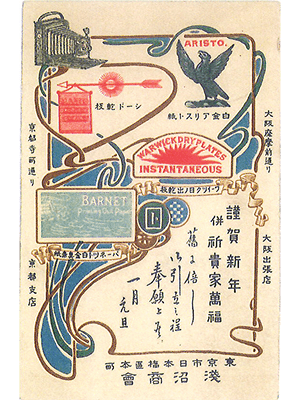 ARISTO.
白金アリスト紙
シード乾板
WARWICK DRY PLATES
INSTANTANEOUS
ワーウヰツク日ノ出乾板
BARNET
Printing Out Paper
バーネツト白金臭素紙
大阪座摩前通り
大阪出張店
謹賀新年
併祈貴家萬福
舊に倍し
御引立之程
奉願上候
一月元旦
京都寺町通り
京都支店
東京市日本橋區本町
淺沼商會